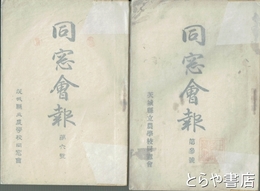 同窓會報
第六號
茨城縣立農學校同窓會
同窓會報
第叁號
茨城縣立農學校同窓會
とらや書店